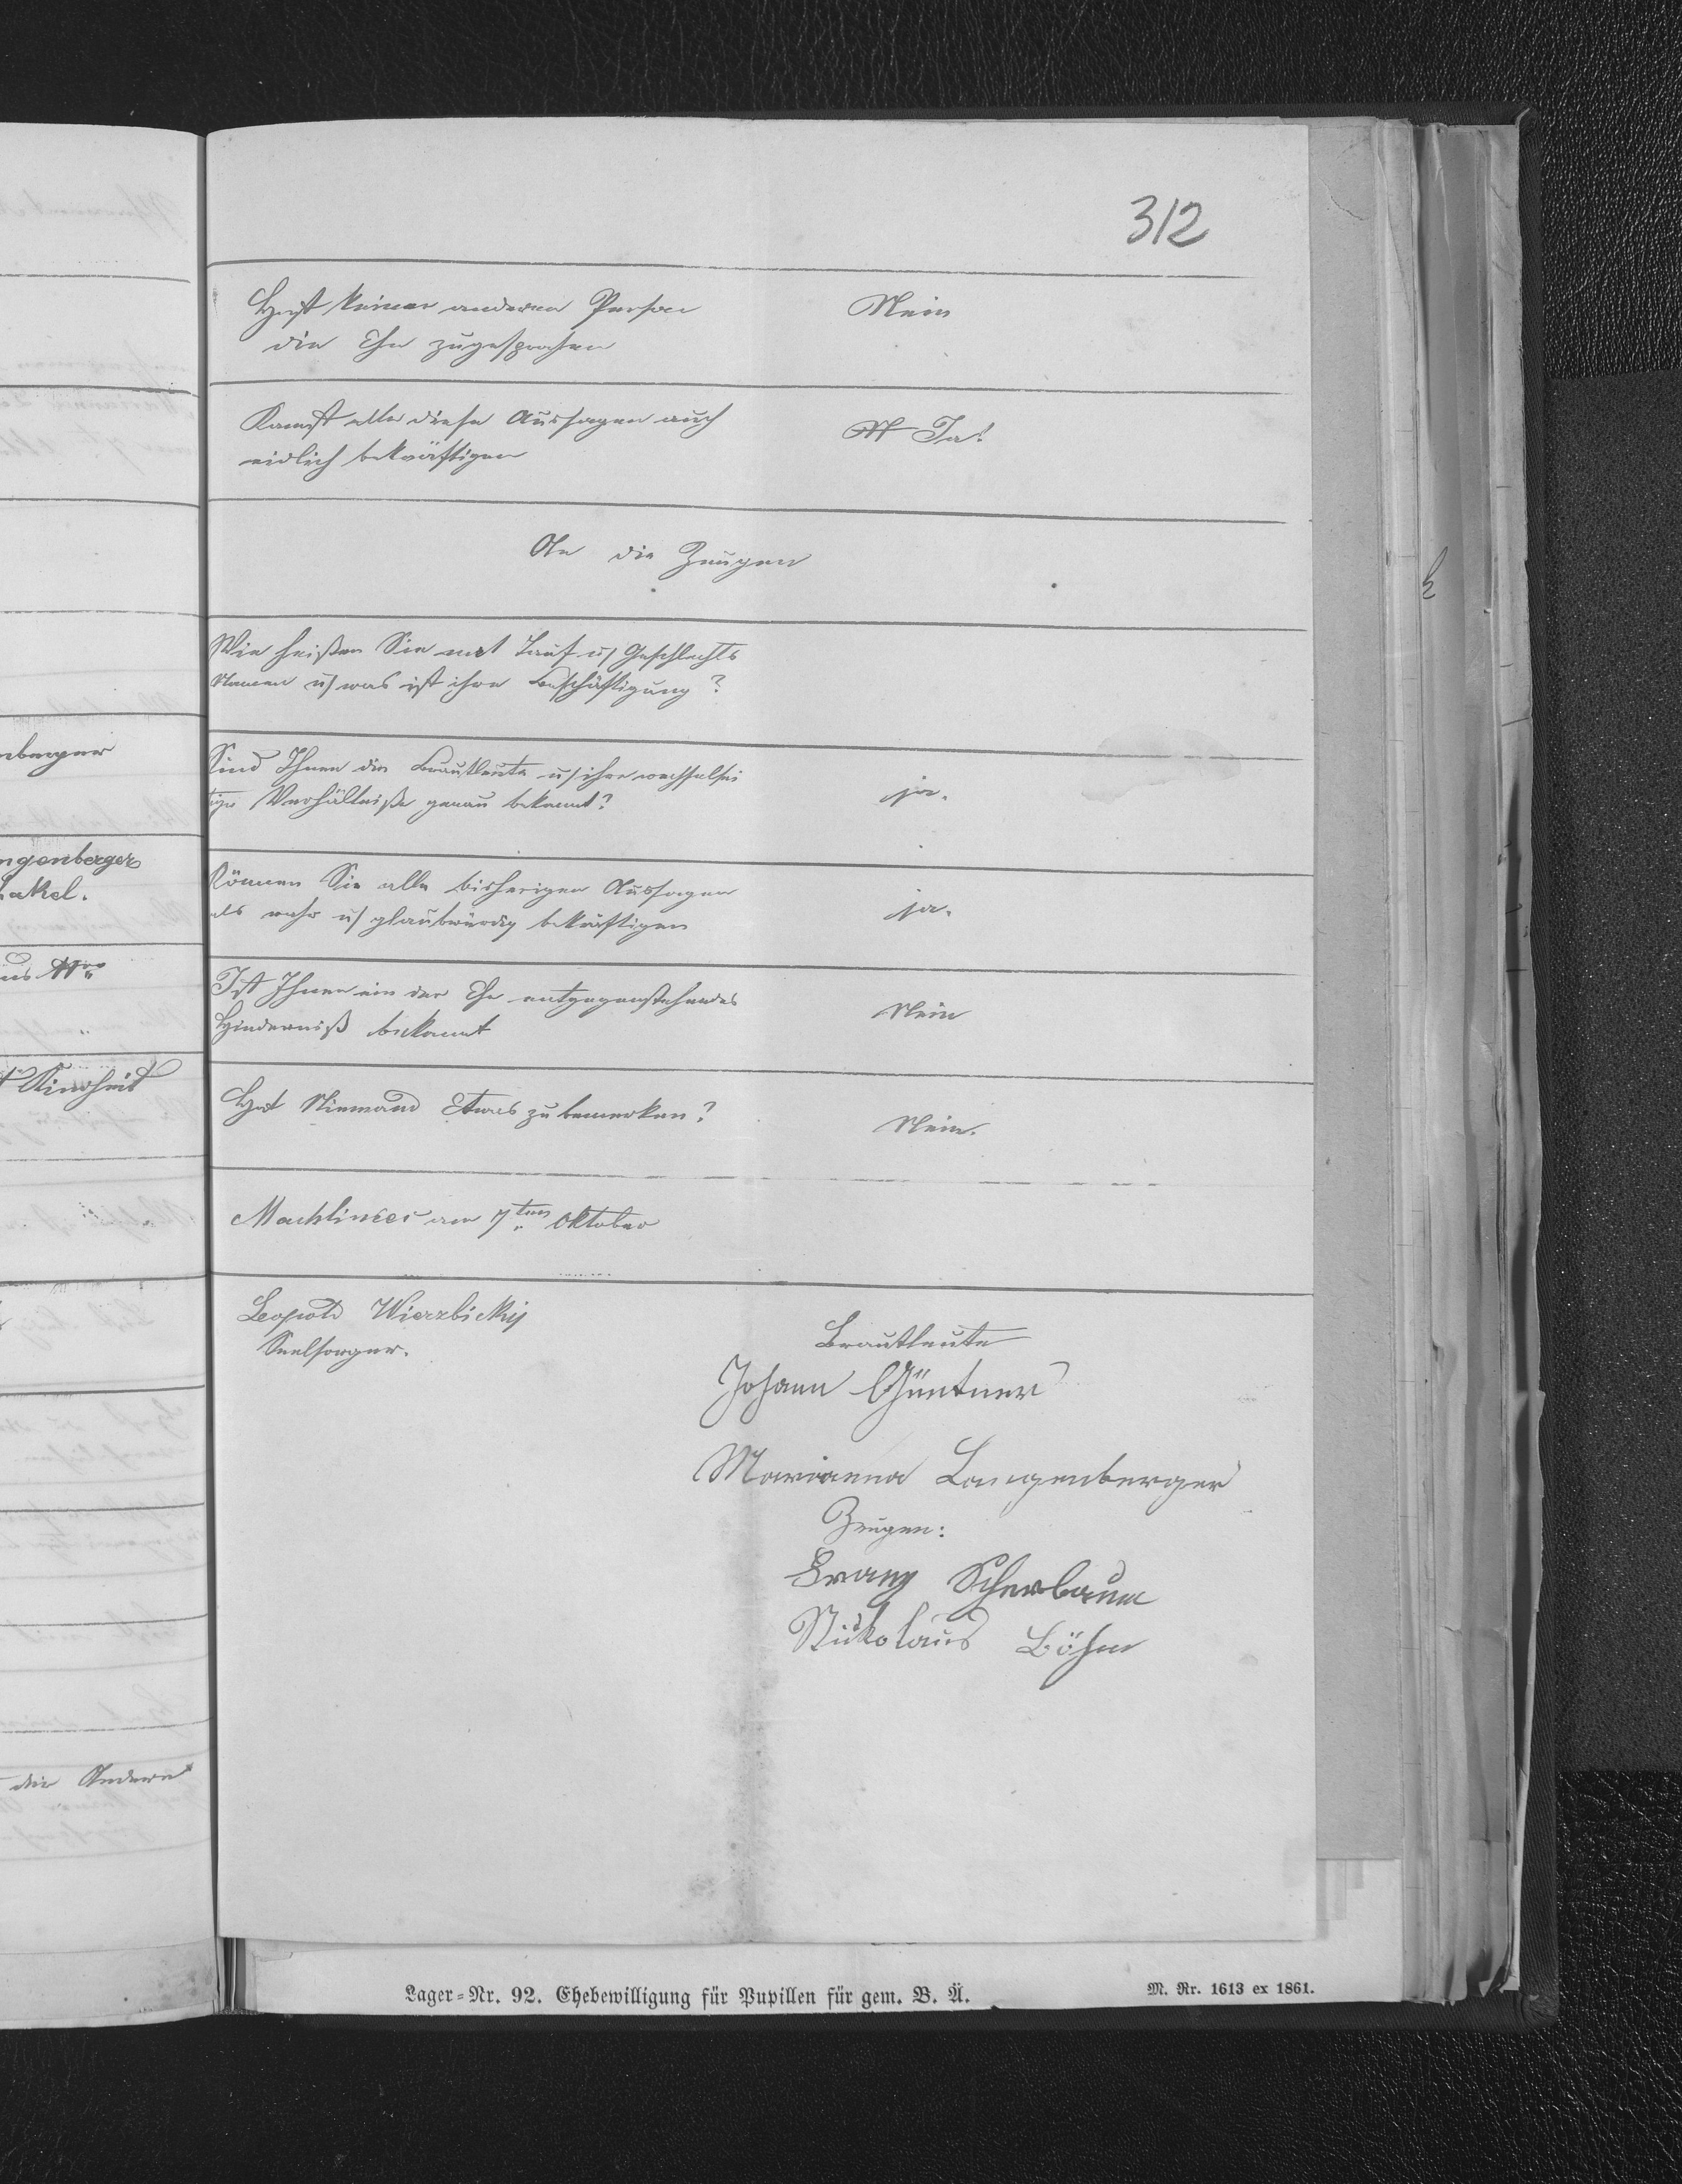 312
Hast keiner anderen Person
die Ehe zugesprochen
Nein
Kannst alle diese Aussagen auch
eidlich bekräftigen
N Ja!
An die Zeugen
Wie heißen Sie mit Tauf u/ Geschlechts
Namen u/ was ist ihre Beschäftigung?
Sind Ihnen die Brautleute u/ ihre wechselsei
tige Verhältniße genau bekannt?
ja.
Können Sie alle bisherigen Aussagen
als wahr u/ glaubwürdig bekräftigen
ja.
Ist Ihnen ein der Ehe entgegenstehendes
Hinderniß bekannt
Nein
Hat Niemand Etwas zu bemerken?
Nein.
Machliniec am 7ten Oktober
Leopold Wierzbickij
Seelsorger.
Brautleute
Johann Güntner
Marianna Langenberger
Zeugen:
Franz Scherbaum
Nikolaus Böhm
nberger
ngenberger
hakel.
Kindheit
die Andere
Lager-Nr. 92. Ehebewilligung für Pupillen für gem. B. Ä.
M. Nr. 1613 ex 1861.